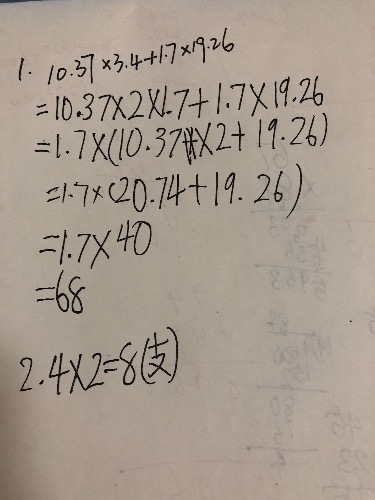 1. 10.37×3.4+1.7×19.26
=10.37×2×1.7+1.7×19.26
=1.7×(10.37×2+19.26)
=1.7×(20.74+19.26)
=1.7×40
=68
2.4×2=8(支)